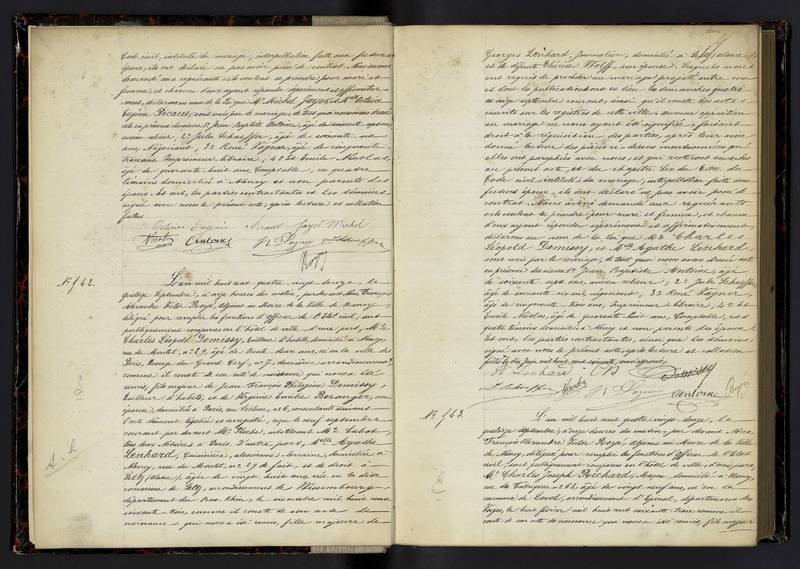 Code civil, intitulé du mariage, interpellation faite aux futurs
époux, ils ont déclaré ne pas avoir passé de contrat. Nous avons
demandé aux requérants s'ils veulent se prendre pour mari et
femme, et chacun d'eux ayant répondu séparément et affirmative-
ment, déclarons au nom de la Loi que Mr. Michel Jayot & Melle Octavie
Eugénie Picard, sont unis par le mariage, de tout quoi nous avons dressé
acte en présence des sieurs 1º Jean Baptiste Antoine, âgé de soixante sept ans,
ancien relieur, 2º Jules Schaeffer, âgé de soixante six
ans, Négociant, 3º René Vagner, âgé de cinquante-
trois ans Imprimeur libraire, 4º et Emile Nicolas,
âgé de quarante huit ans, Comptable, ces quatre
témoins domiciliés à Nancy et non parents des
époux. Et ont, les parties contractantes et les témoins
signé avec nous le présent acte, après lecture et collation
faites
Octavie Eugénie Jayot Michel
Nicolas Antoine R. Vagner J. Schaeffer
Royé
No. 742.
L'an mil huit cent quatre vingt douze, le
quatorze Septembre, à onze heures du matin, par devant Nous, François
Alexandre Victor Royé, adjoint au Maire de la Ville de Nancy
délégué pour remplir les fonctions d'officier de l'Etat civil, sont
publiquement comparus en l'hôtel de ville d'une part, Mr.
Charles Léopold Demissy, tailleur d'habits, domicilié à Nancy,
rue du Montet, no. 29, âgé de trente deux ans, né en la ville de
Paris, Passage du Grand Cerf, no. 7, deuxième arrondissement,
comme il conste de son acte de naissance qui nous a été
remis, fils majeur de Jean François Philogène Demissy,
tailleur d'habits, et de Virginie Emilie Beranger, son
épouse, domiciliés à Paris, no. 6, consentants suivant
l'acte dûment légalisé et enregistré, reçu le neuf septembre
courant par devant Me. substituant Me.
tous deux Notaires à Paris. D'autre part, Melle Agathe
Lenhard, Cuisinière, alsacienne-lorraine, domiciliée à
Nancy, rue du Montet, no. 29 de fait, et de droit à
Seltz (Alsace), âgée de vingt huit ans, née en la dite
commune de Seltz, arrondissement de Wissembourg
département du Bas-Rhin, le six octobre mil huit cent
soixante trois, comme il conste de son acte de
naissance qui nous a été remis, fille majeure de
A. L.
Georges Lenhard, journalier, domicilié à Seltz (Alsace),
et de défunte Thérèse Wolff, son épouse; Lesquels nous
ont requis de procéder au mariage projeté entre eux
et dont les publications ont eu lieu les dimanches quatre
et onze septembre courant, ainsi qu'il conste des actes
inscrits sur les registres de cette ville; aucune opposition
au mariage ne nous ayant été signifiée, faisant
droit à la réquisition des parties, après leur avoir
donné lecture des pièces ci-dessus mentionnées qu'
elles ont paraphées avec nous, et qui resteront annexées
au présent acte, et du chapitre Six du titre du
Code civil intitulé du mariage; interpellation faite aux
futurs époux, ils ont déclaré ne pas avoir passé de
contrat. Nous avons demandé aux requérants
s'ils veulent se prendre pour mari et femme, et chacun
d'eux ayant répondu séparément et affirmativement,
déclarons au nom de la loi que Mr. Charles
Léopold Demissy, et Melle Agathe Lenhard,
sont unis par le mariage, de tout quoi nous avons dressé acte
en présence des sieurs 1º Jean Baptiste Antoine, âgé
de soixante sept ans, ancien relieur, 2º Jules Schaeffer,
âgé de soixante six ans, négociant, 3º René Vagner
âgé de cinquante trois ans, Imprimeur libraire, 4º et
Emile Nicolas, âgé de quarante huit ans, Comptable, ces
quatre témoins domiciliés à Nancy et non parents des époux.
Et ont, les parties contractantes, ainsi que les témoins
signé avec nous le présent acte, après lecture et collation
faites
A. Lenhard Demissy
J. Schaeffer Nicolas R. Vagner Antoine Royé
No. 743.
L'an mil huit cent quatre vingt douze, le
quatorze septembre, à onze heures du matin, par devant Nous,
François Alexandre Victor Royé, adjoint au Maire de la Ville
de Nancy, délégué pour remplir les fonctions d'officier de l'Etat
civil, sont publiquement comparus en l'hôtel de ville, d'une part,
Mr. Charles Joseph Péichard, Maçon, domicilié à Nancy,
rue des Fabriques, no. 62, âgé de vingt neuf ans, né en la
commune de Laval, arrondissement d'Epinal, département des
Vosges, le huit février mil huit cent soixante trois, comme il
conste de son acte de naissance qui nous a été remis, fils majeur